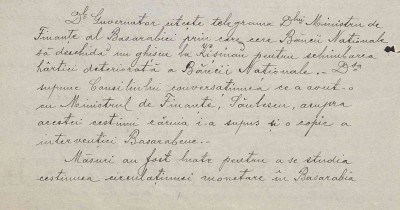 Dl. Guvernator citeste telegrama Dlui Ministru de
Finante al Basarabiei prin care cere Băncii Nationale
să deschidă un ghiseu la Kisinau pentru schimbarea
hârtiei deteriorată a Băncii Nationale. - Dsa
supune Consiliului conversatiunea ce a avut-o
cu Ministrul de Finante, Săulescu, asupra
acestei cestiuni căruia i-a supus si o copie a
interventiei Basarabene. -
Măsuri au fost luate pentru a se studia
cestiunea circulatiunei monetare în Basarabia